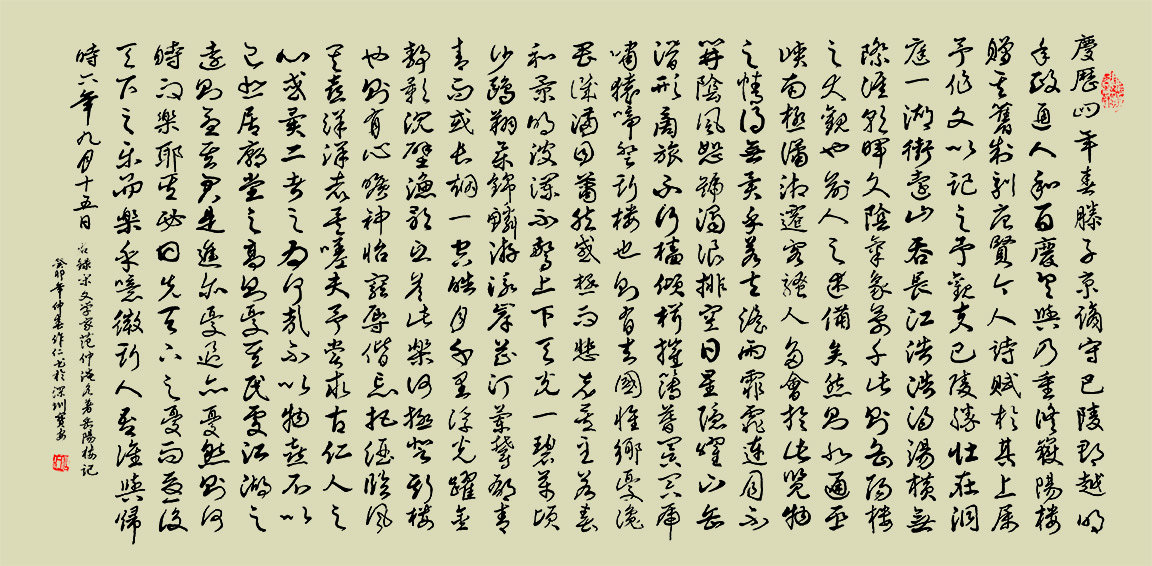 慶歷四年春滕子京謫守巴陵郡越明
年政通人和百廢具興乃重修嶽陽樓
增其舊制刻唐賢今人詩賦於其上屬
予作文以記之予觀夫巴陵勝狀在洞
庭一湖銜遠山吞長江浩浩湯湯橫無
際涯朝暉夕陰氣象萬千此則岳陽樓
之大觀也前人之述備矣然則北通巫
峽南極瀟湘遷客騷人多會於此覽物
之情得無異乎若夫淫雨霏霏連月不
開陰風怒號濁浪排空日星隱耀山岳
潛形商旅不行檣傾楫摧薄暮冥冥虎
嘯猿啼登斯樓也則有去國懷鄉憂讒
畏譏滿目蕭然感極而悲者矣至若春
和景明波瀾不驚上下天光一碧萬頃
沙鷗翔集錦鱗游泳岸芷汀蘭郁郁青
青而或長煙一空皓月千里浮光躍金
靜影沉璧漁歌互答此樂何極登斯樓
也則有心曠神怡寵辱偕忘把酒臨風
其喜洋洋者矣嗟夫予嘗求古仁人之
心或異二者之為何哉不以物喜不以
己悲居廟堂之高則憂其民處江湖之
遠則憂其君是進亦憂退亦憂然則何
時而樂耶其必曰先天下之憂而憂後
天下之樂而樂乎噫微斯人吾誰與歸
時六年九月十五日
錄宋文学家范仲淹名著岳陽樓記
癸卯年仲春作仁书於深圳寶安